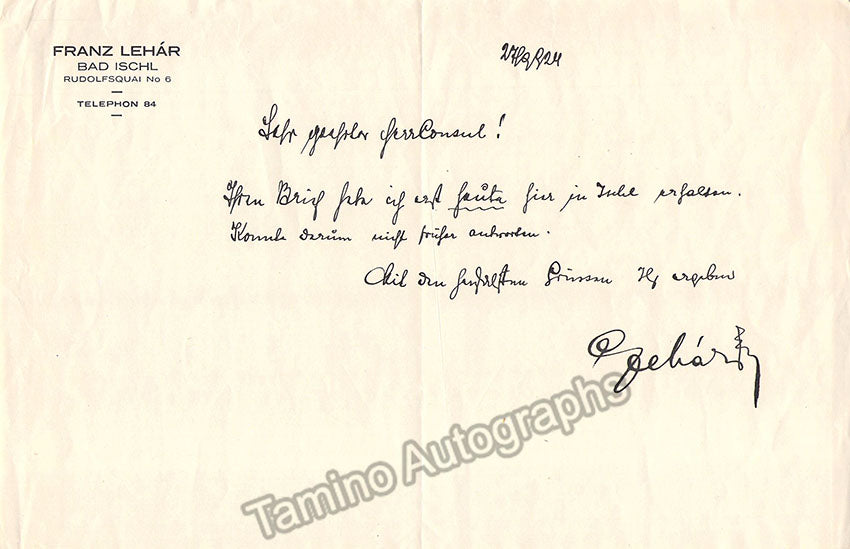 FRANZ LEHÁR
BAD ISCHL
RUDOLFSQUAI No 6
TELEPHON 84
Sehr geehrter Herr Consul!
Ihren Brief habe ich erst heute hier in Ischl erhalten.
Konnte darum nicht früher antworten.
Mit den herzlichsten Grüssen Ihr ergebener
Lehár
Tamino Autographs